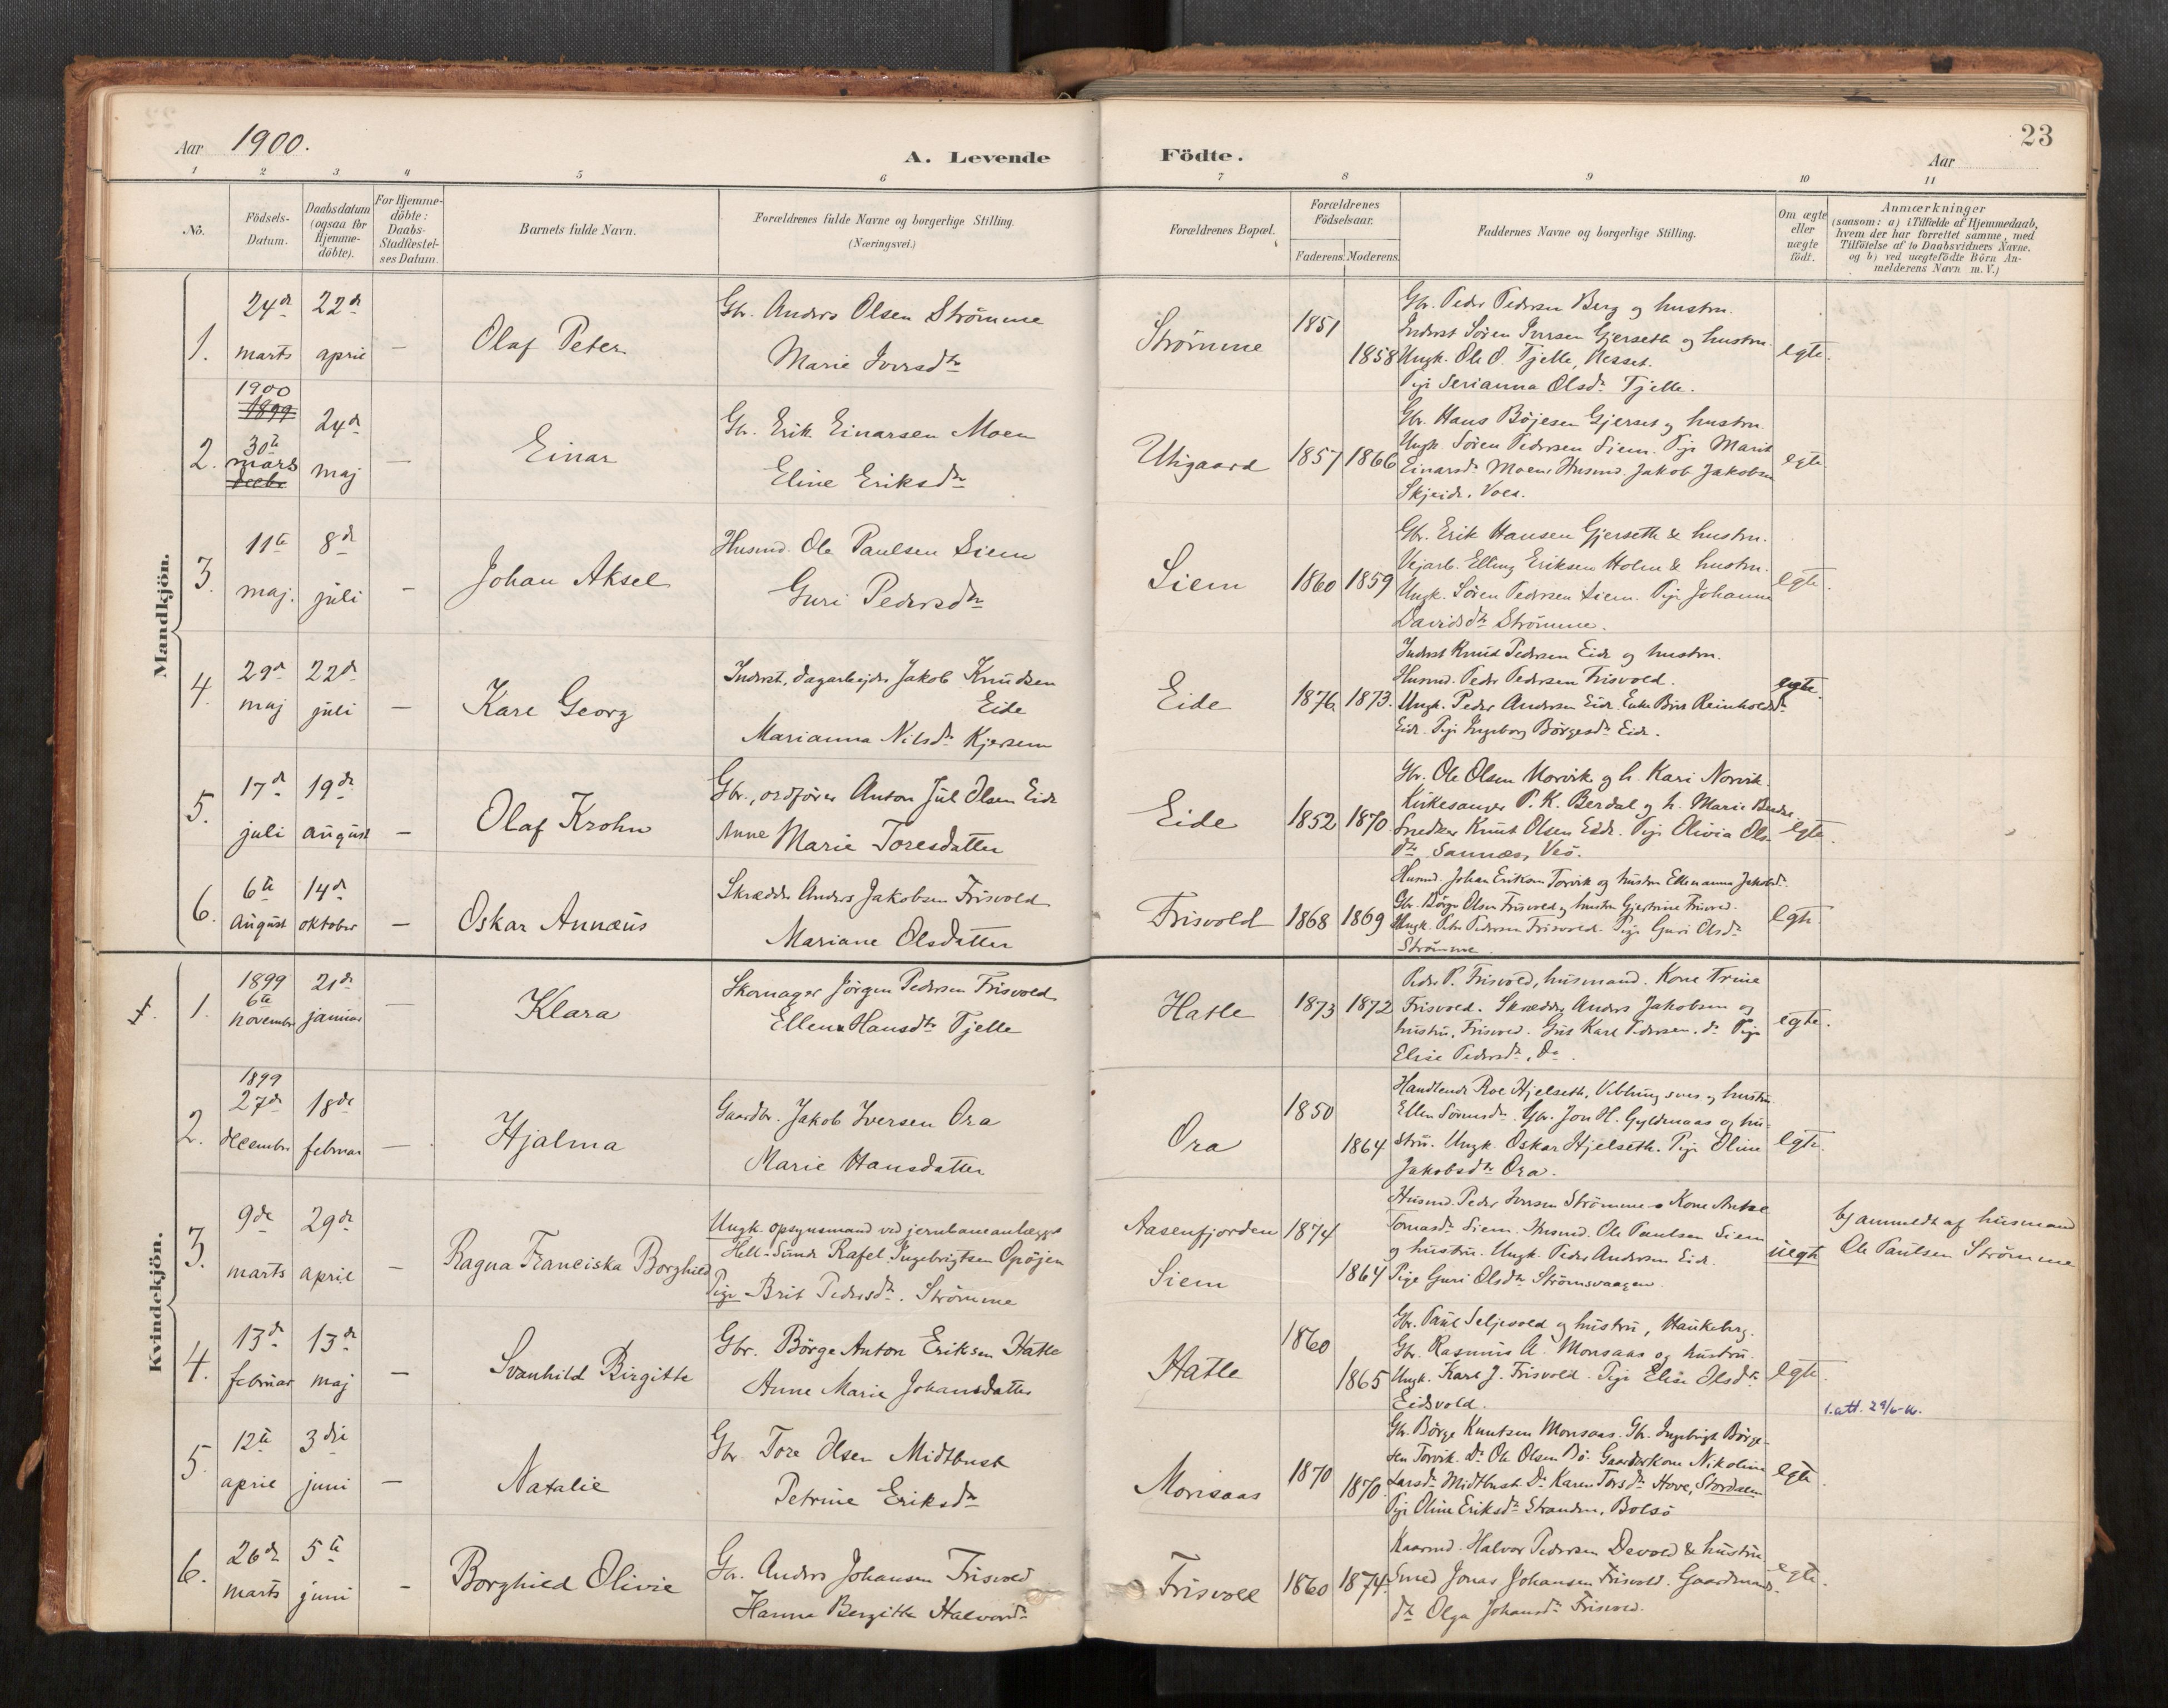 Aar 1900.
A. Levende
Födte.
Aar
23
1 2 3 4 5 6 7 8 9 10 11
No.
Födsels-Datum.
Daabsdatum (ogsaa for Hjemme-döbte).
For Hjemme-döbte: Daabs-Stadfæstel-ses Datum.
Barnets fulde Navn.
Forældrenes fulde Navne og borgerlige Stilling.
(Næringsvei.)
Forældrenes Bopæl.
Forældrenes Födselsaar.
Faderens. Moderens.
Faddernes Navne og borgerlige Stilling.
Om ægte eller uægte födt.
Anmærkninger
(saasom: a) i Tilfælde af Hjemmedaab,
hvem der har forrettet samme, med
Tilföielse af to Daabsvidners Navne.
og b) ved uægtefödte Börn An-
melderens Navn m. V.)
Mandkjön.
1.
24de marts
22de april
—
Olaf Peter
Gbr. Anders Olsen Strömme
Marie Iversdtr
Strömme
1851
1858
Gbr. Peder Pedersen Berg og hustru.
Inderst Sören Iversen Gjerseth og hustru.
Ungk. Ole O. Tjelle, Nesset.
Pige Serianna Olsdtr Tjelle.
egte.
2.
1900
1899
30te
mars
decbr
24de maj
—
Einar
Gbr. Erik Einarsen Moen
Eline Eriksdtr
Utigaard
1857
1866
Gbr. Hans Böjesen Gjerset og hustru.
Ungk. Sören Pedersen Siem. Pige Marit
Einarsdtr Moen. Husmd. Jakob Jakobsen
Skjeide. Voes.
egte.
3.
11te maj.
8de juli
—
Johan Aksel
Husmd. Ole Paulsen Siem
Guri Pedersdtr
Siem
1860
1859
Gbr. Erik Hansen Gjerseth & hustru.
Vejarb. Elling Eriksen Holm & hustru.
Ungk. Sören Pedersen Siem. Pige Johanna
Davidsdtr Strömme.
egte.
4.
29de maj
22de juli
—
Karl Georg
Inderst, dagarbejder Jakob Knudsen
Eide
Marianna Nilsdtr Kjersem
Eide
1876
1873.
Inderst Knud Pedersen Eide og hustru.
Husmd. Peder Pedersen Frisvold.
Ungk. Peder Andersen Eide. Enke Brit Reinholdsdtr
Eide. Pige Ingeborg Börgesdtr Eide.
egte.
5.
17de juli
19de august
—
Olaf Krohn
Gbr., ordförer Anton Jul Olsen Eide
Anne Marie Toresdatter
Eide
1852
1870
Gbr. Ole Olsen Norvik og h. Kari Norvik.
Kirkesanger P. K. Berdal og h. Marie Berdal.
Snedker Knut Olsen Eide. Pige Olivia Ols-
dtr Sannæs, Veö.
egte.
6.
6te august
14de oktober
—
Oskar Annæus
Skrædder Anders Jakobsen Frisvold
Mariane Olsdatter
Frisvold
1868
1869
Husmd. Johan Eriksen Torvik og hustru Ellenanna Jakobsd.
Gbr. Börge Olsen Frisvold og hustru Gjertrine Frisvold.
Ungk. Peder Pedersen Frisvold. Pige Guri Olsdtr
Strömme.
egte.
Kvindekjön.
1.
1899
6te novembr
21de januar
—
Klara
Skomager Jörgen Pedersen Frisvold
Ellen Hansdtr Tjelle
Hatle
1873
1872
Peder P. Frisvold, husmand. Kone Trine
Frisvold. Skrædder Anders Jakobsen og
hustru, Frisvold. Gut Karl Pedersen. do Pige
Elise Pedersdtr, do.
egte.
2.
1899
27de decembr
18de februar
—
Hjalma
Gaardbr. Jakob Iversen Ora
Marie Hansdatter
Ora
1850
1864
Handlende Roe Hjelseth, Vebungsnes og hustru
Ellen Sörensdtr. Gbr. Jon H. Gyldenaas og hu-
stru. Ungk. Oskar Hjelseth. Pige Oline
Jakobsdtr Ora.
egte.
3.
9de marts
29de april
—
Ragna Franciska Borghild
Ungk. opsynsmand ved jernbaneanlægget
Hell-Sunde Rafel Ingebrigtsen Opöjen
Pige Brit Pedersdtr. Strömme
Aasenfjorden
Siem
1874
1864
Husmd. Peder Iversen Strömme. Kone
Tomasdtr Siem. Husmd. Ole Paulsen Siem
og hustru. Ungk. Peder Andersen Eide.
Pige Guri Olsdtr Strömsvaagen
uegte
b) anmeldt af husmand
Ole Paulsen Strömme
4.
13de februar
13de maj
—
Svanhild Birgitte
Gbr. Börge Anton Eriksen Hatle
Anne Marie Johansdatter
Hatle
1860
1865
Gbr. Paul Seljevold og hustru, Haukeberg.
Gbr. Rasmus A. Monsaas og hustru.
Ungk. Karl J. Frisvold. Pige Elise Olsdtr
Eidsvold.
egte.
1.att. 29/6-16.
5.
12te april
3die juni
—
Natalie
Gbr Tore Olsen Midtbust
Petrine Eriksdtr
Monsaas
1870
1870.
Gbr. Börge Knutsen Monsaas. Gbr. Ingebrigt Börge-
sen Torvik. Do Ole Olsen Bö. Gaarderkone Nikoline
Larsdtr Midtbust. Do Karen Torsdtr Hove, Stordalen
Pige Oline Eriksdtr Stranden, Bolsö
egte.
6.
26de marts
5te juni
—
Borghild Olivie
Gbr. Anders Johansen Frisvold
Hanna Bergitte Halvorsdtr
Frisvold
1860
1874.
Kaarmd. Halvor Pedersen Devold & hustru
Smed Jonas Johansen Frisvold. Gaardmands-
dtr Olga Johansdtr Frisvold.
egte.